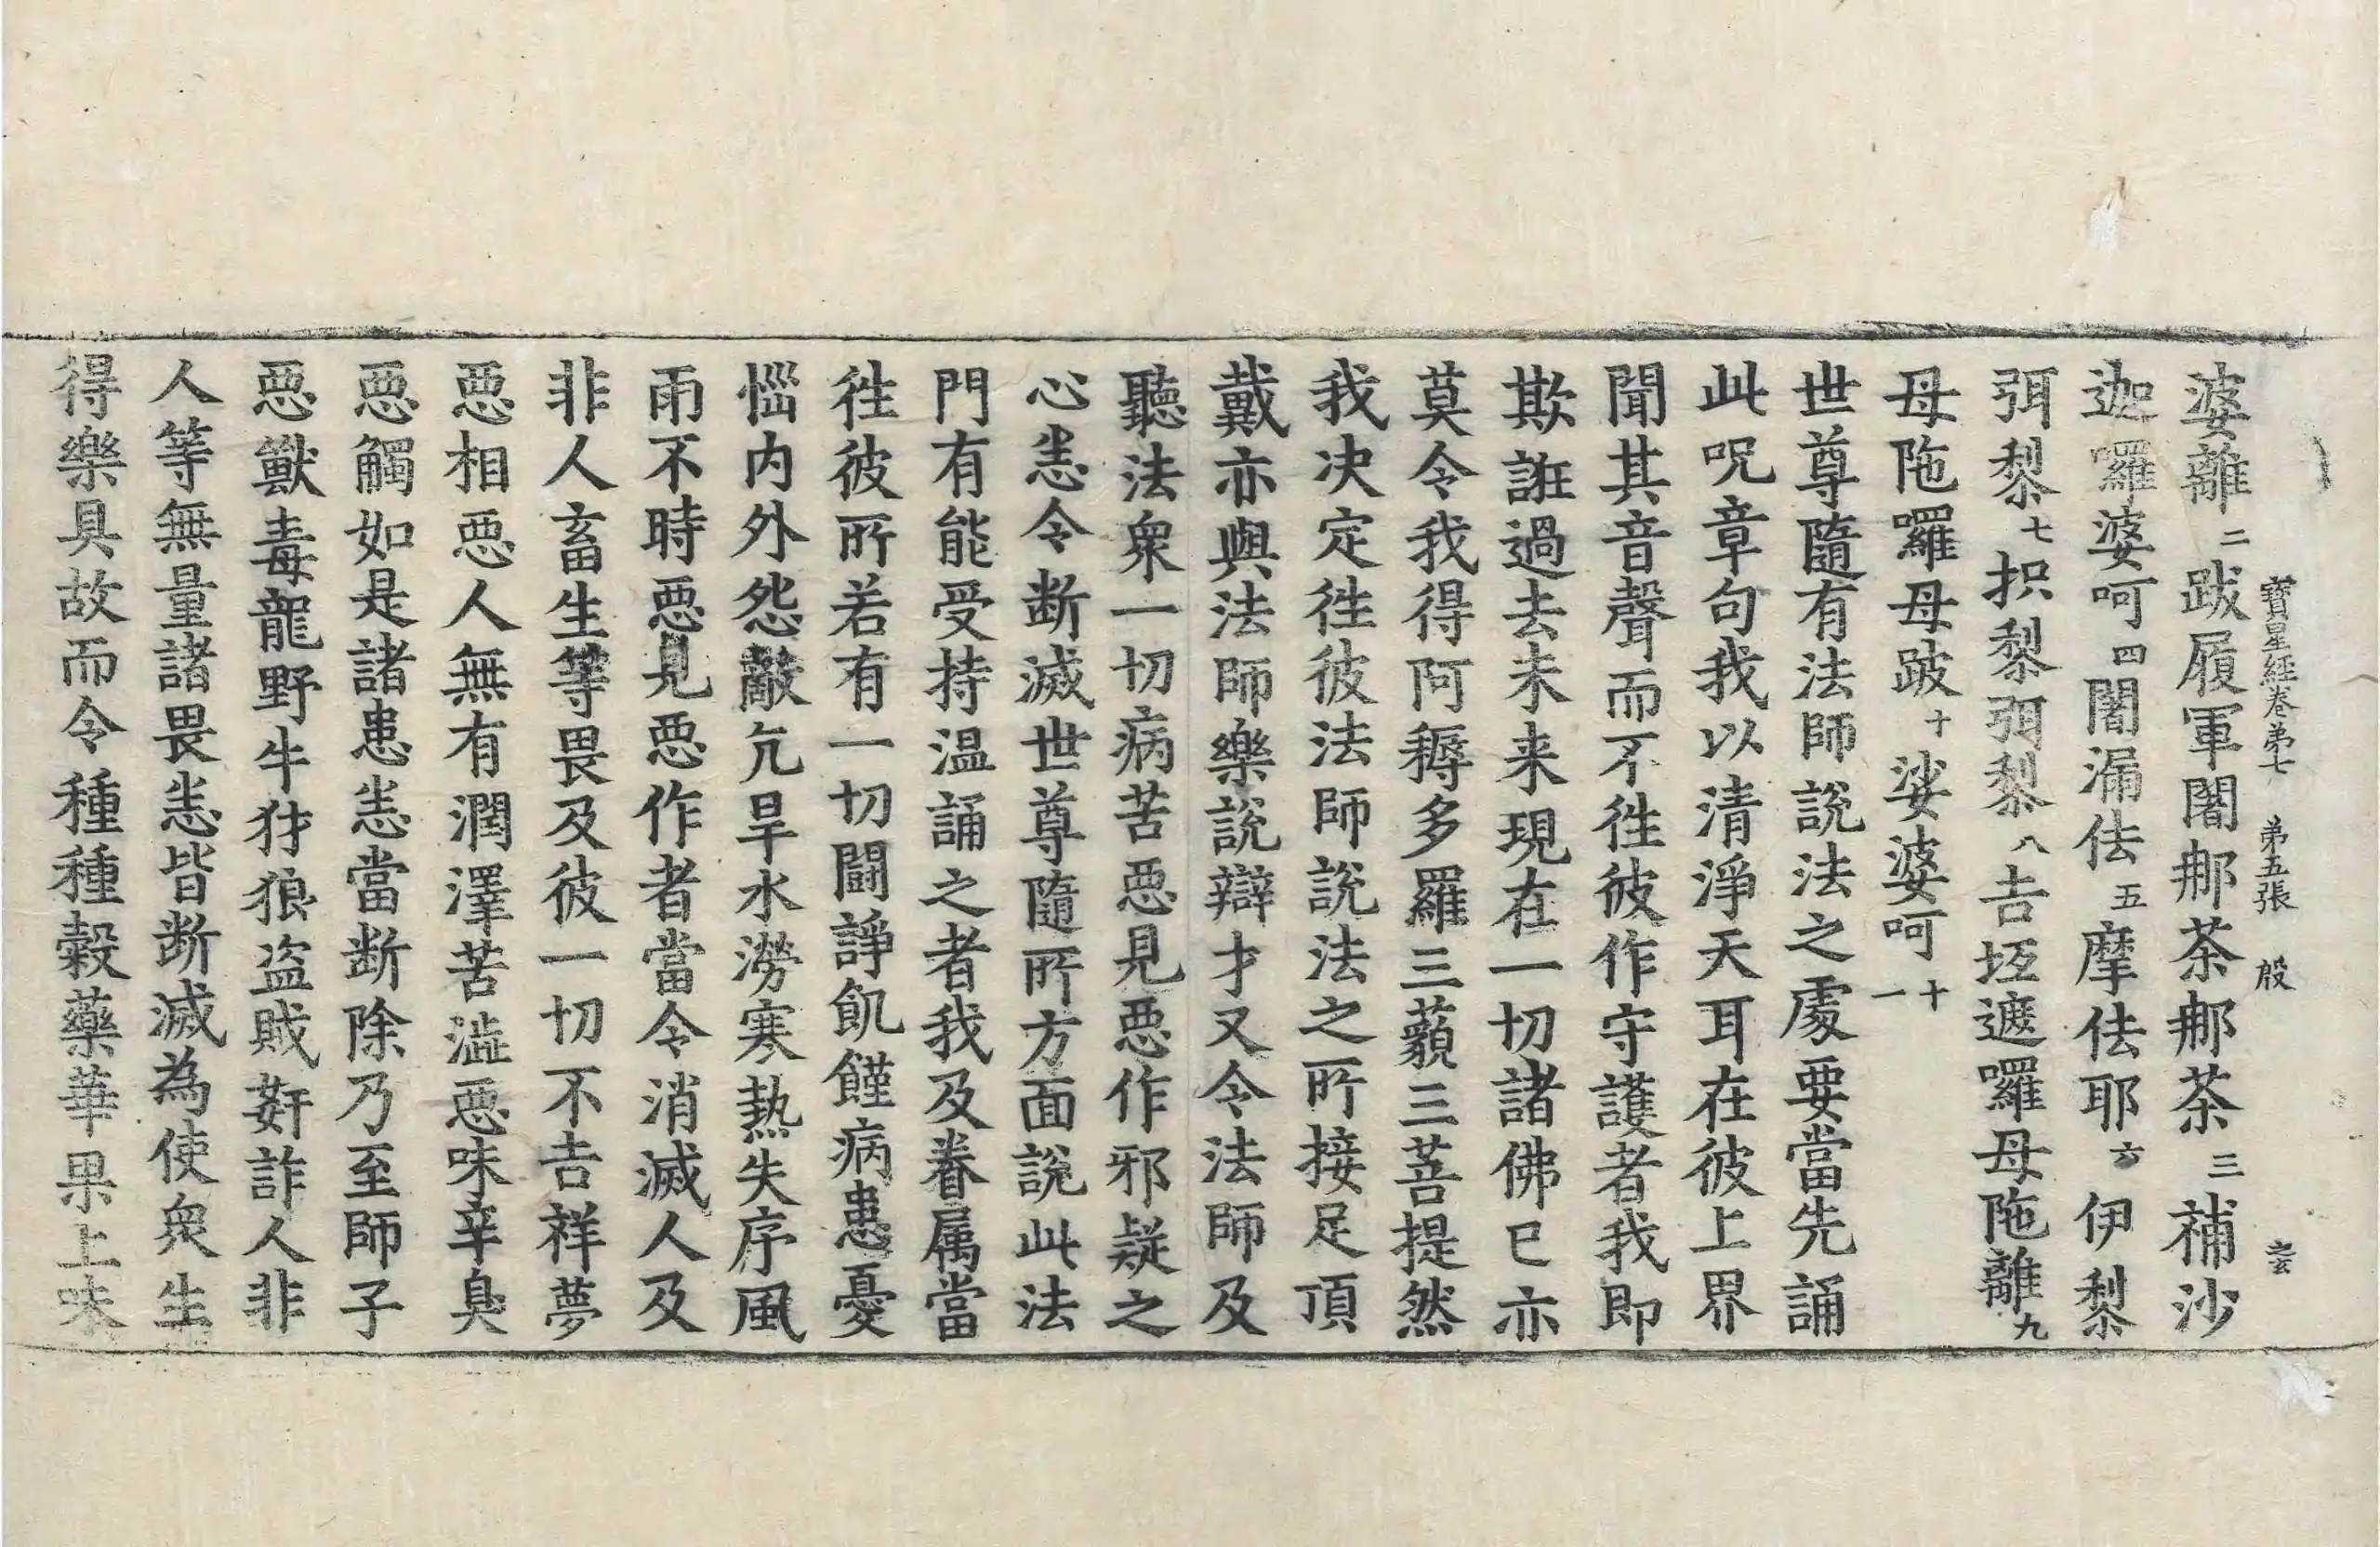 寶星經卷苐七　苐五張　殷
婆離二跋履軍闍郍茶郍茶三補沙
迦囉婆呵四闍漏佉五摩佉耶六伊黎
弭黎七抧黎弭黎八吉坘遮囉母陁離九
母陁囉母跛十娑婆呵十一
世尊隨有法師說法之處要當先誦
此呪章句我以清淨天耳在彼上界
聞其音聲而不徃彼作守護者我即
欺誑過去未来現在一切諸佛已亦
莫令我得阿耨多羅三藐三菩提然
我决定徃彼法師說法之所接足頂
戴亦與法師樂說辯才又令法師及
聽法衆一切病苦惡見惡作邪疑之
心恙令断滅世尊隨所方面說此法
門有能受持温誦之者我及眷属當
徃彼所若有一切闘諍飢饉病患憂
惱内外怨敵亢旱水澇寒熱失序風
雨不時惡見惡作者當令消滅人及
非人畜生等畏及彼一切不吉祥夢
惡相惡人無有潤澤苦澁惡味辛臭
惡觸如是諸患恙當断除乃至師子
惡獸毒龍野牛犲狼盗賊姧詐人非
人等無量諸畏恙皆断滅為使衆生
得樂具故而令種種穀藥華果上味